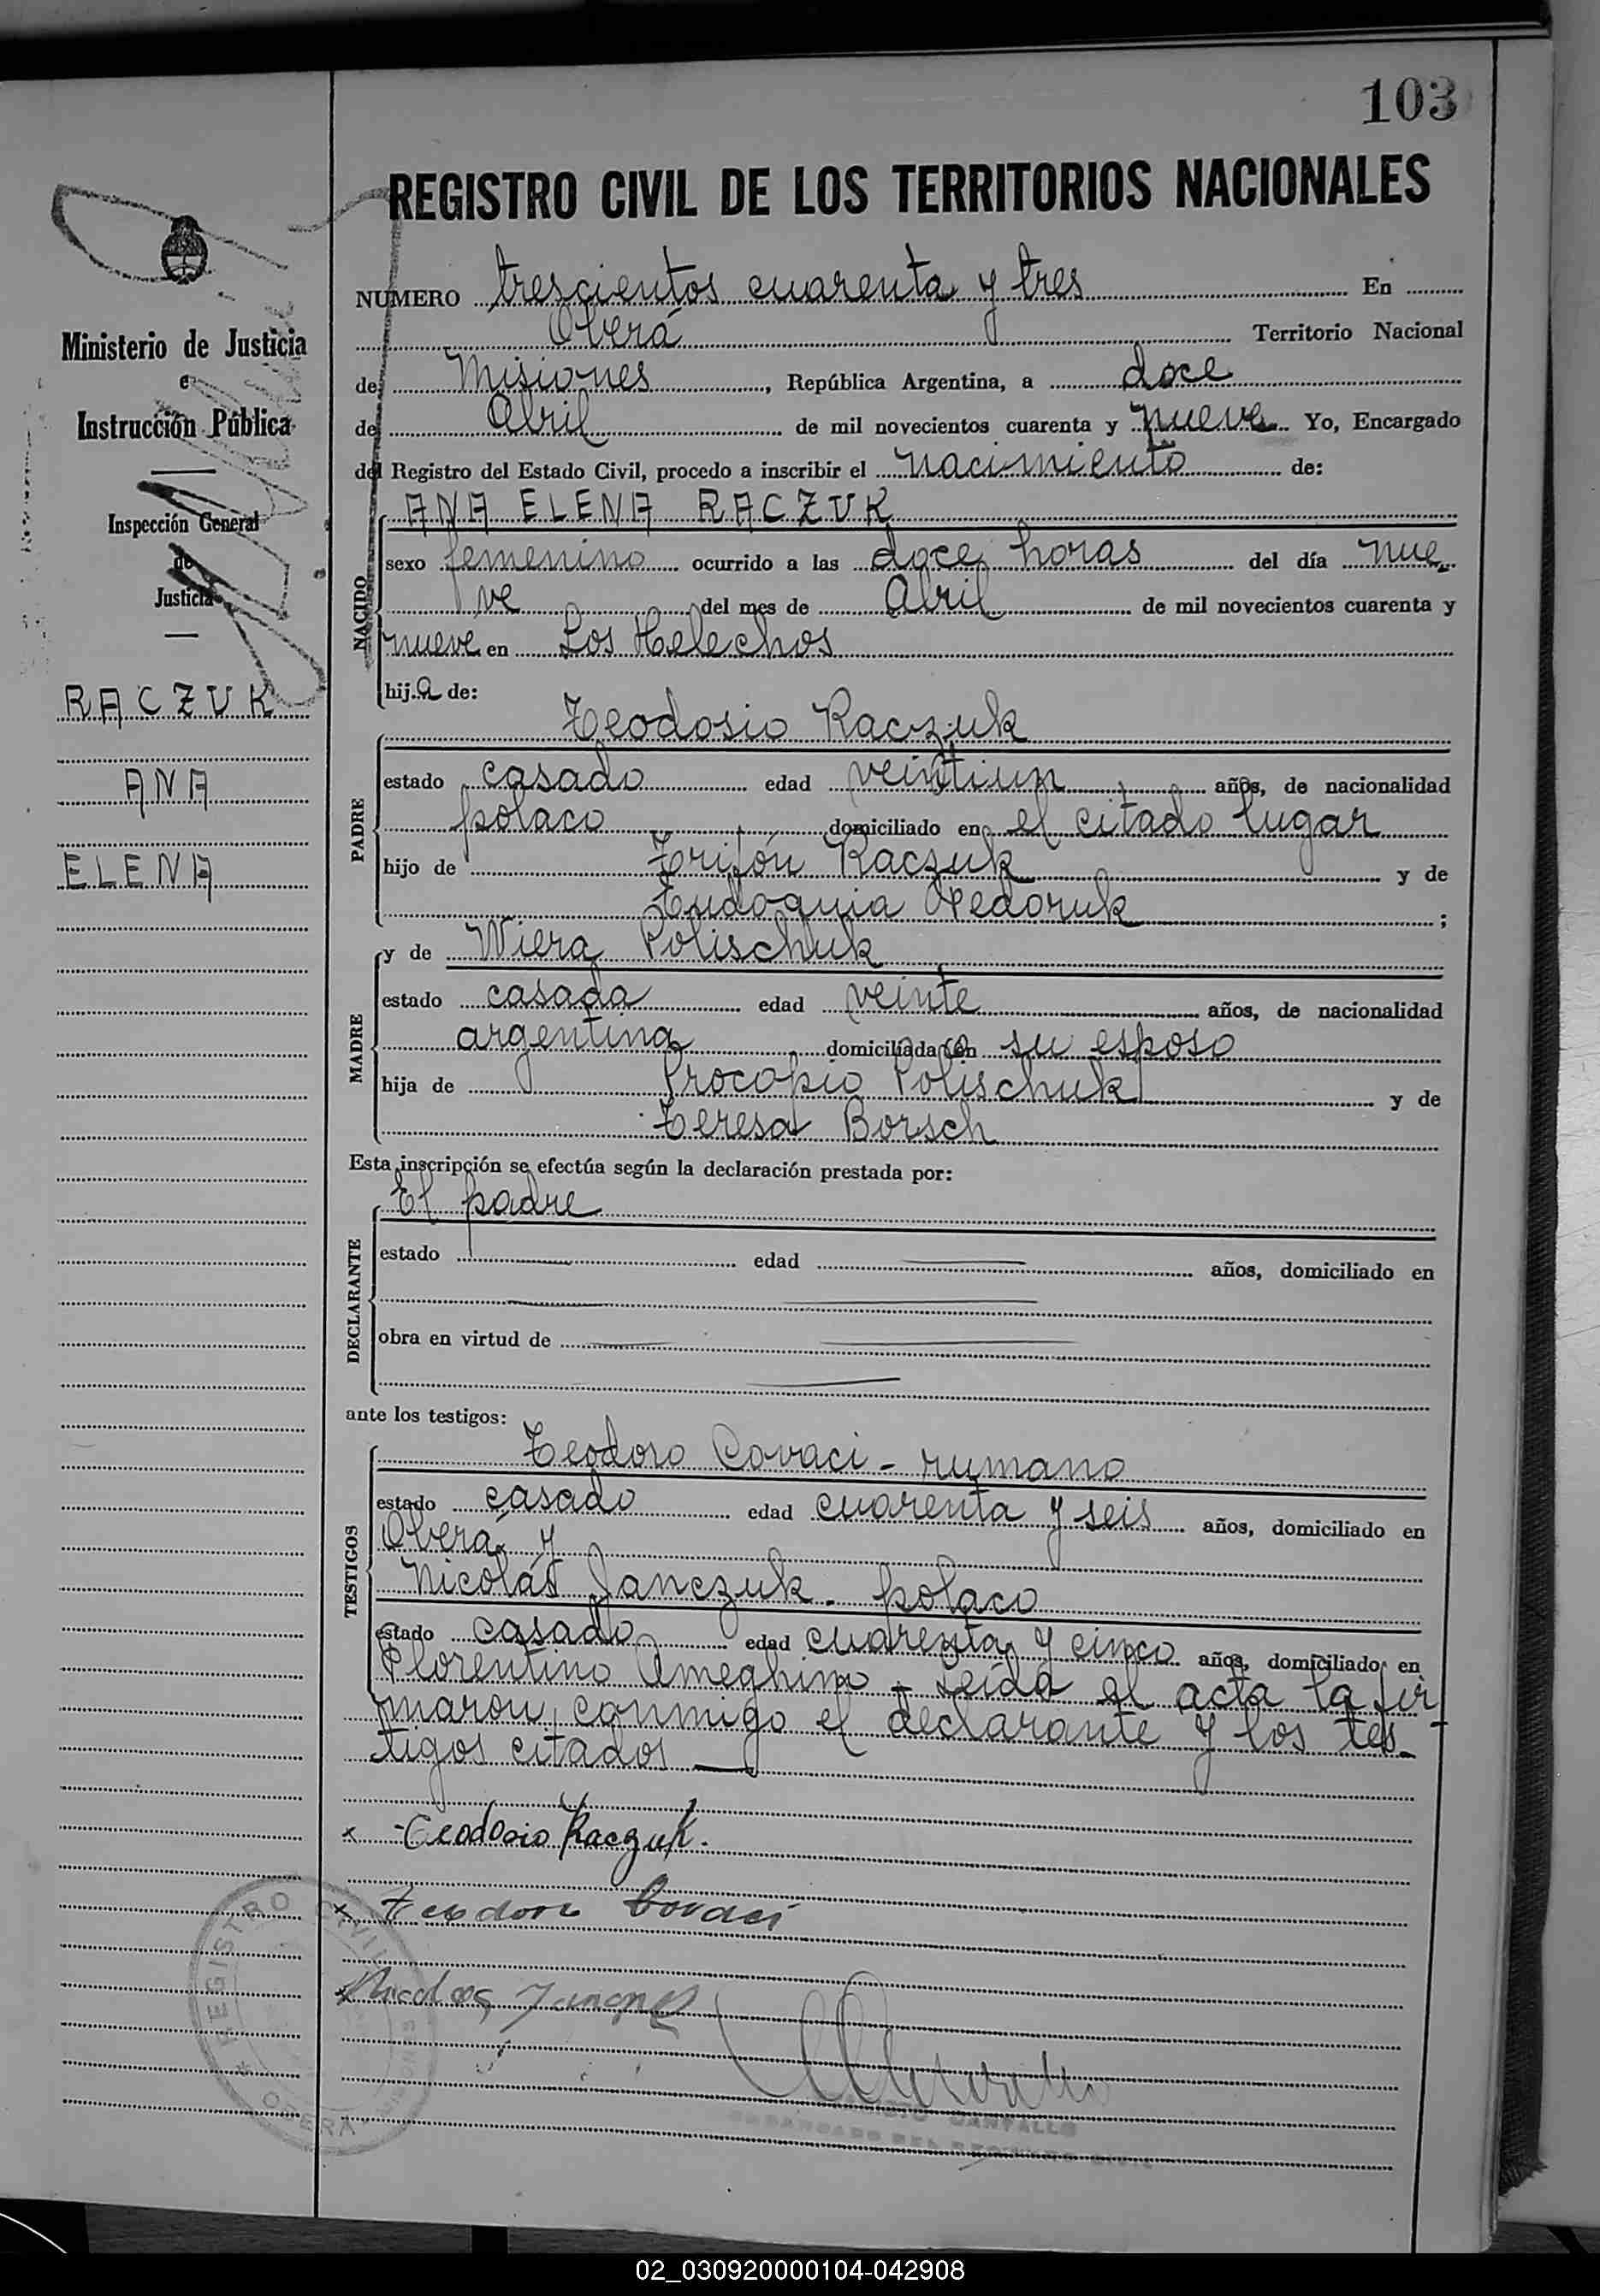 103
REGISTRO CIVIL DE LOS TERRITORIOS NACIONALES
NUMERO trescientos cuarenta y tres En
Oberá Territorio Nacional
de Misiones, República Argentina, a doce
de Abril de mil novecientos cuarenta y nueve Yo, Encargado
del Registro del Estado Civil, procedo a inscribir el nacimiento de:
NACIDO
ANA ELENA RACZUK
sexo femenino ocurrido a las doce horas del día nue
ve del mes de Abril de mil novecientos cuarenta y
nueve en Los Helechos
hija de:
PADRE
Teodosio Raczuk
estado casado edad veintiun años, de nacionalidad
polaco domiciliado en el citado lugar
hijo de Trifón Raczuk y de
Eudoquia Fedoruk;
MADRE
y de Wiera Polischuk
estado casada edad veinte años, de nacionalidad
argentina domiciliada con su esposo
hija de Procopio Polischuk y de
Teresa Borsch
Esta inscripción se efectúa según la declaración prestada por:
DECLARANTE
El padre
estado edad años, domiciliado en
obra en virtud de
ante los testigos:
TESTIGOS
Teodoro Covaci - rumano
estado casado edad cuarenta y seis años, domiciliado en
Oberá y
Nicolás Janczuk - polaco
estado casado edad cuarenta y cinco años, domiciliado en
Florentino Ameghino - Leída el acta la fir
maron conmigo el declarante y los tes-
tigos citados
x Teodosio Raczuk.
x Teodoro Covaci
x Nicolas
Ministerio de Justicia
e
Instrucción Pública
Inspección General
de
Justicia
RACZUK
ANA
ELENA
REGISTRO CIVIL
OBERA MISIONES
ENCARGADO DEL REGISTRO CIVIL
02_030920000104-042908